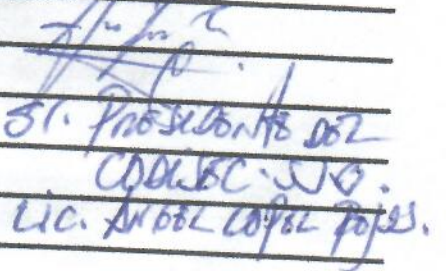 Sr. Presidente del
CODISEC - SJO.
Lic. Angel López Rojas.